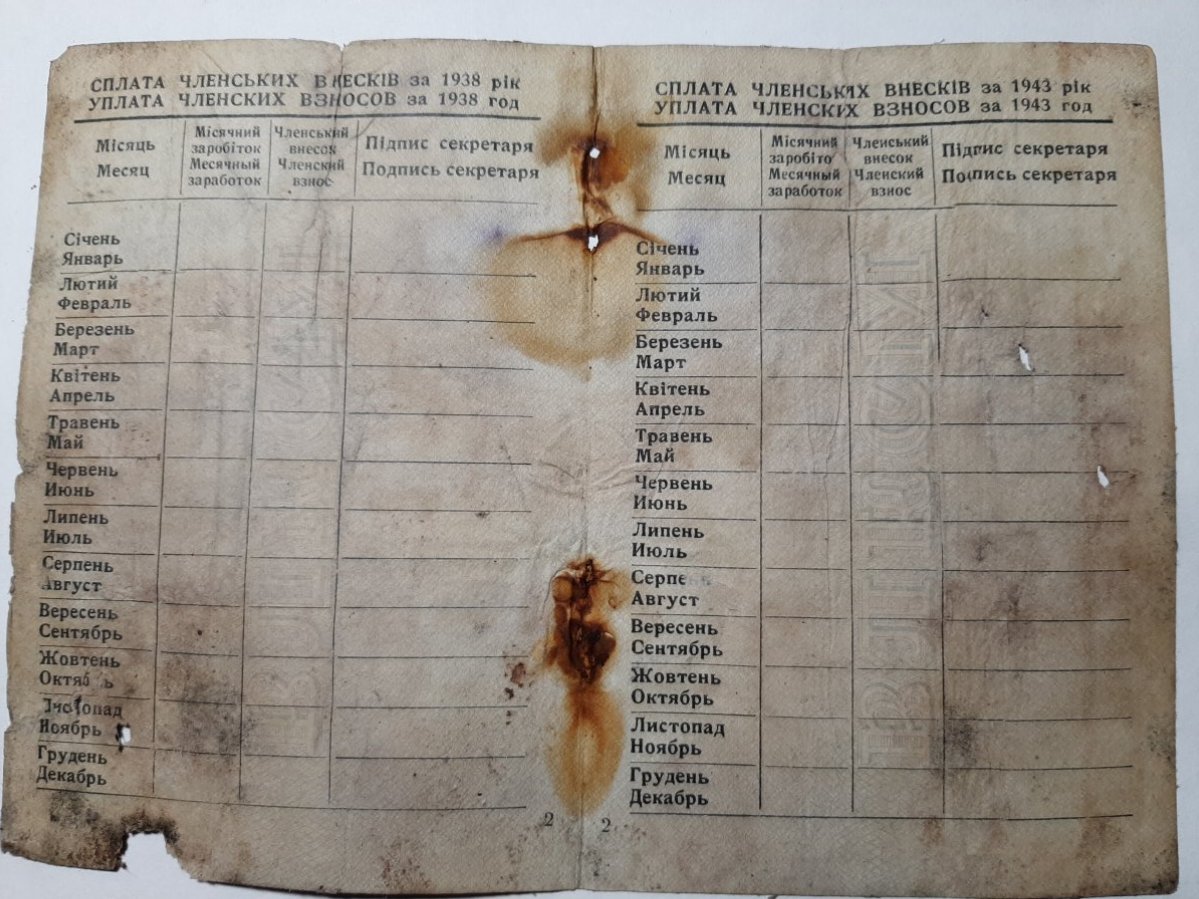 СПЛАТА ЧЛЕНСЬКИХ ВНЕСКІВ за 1938 рік
УПЛАТА ЧЛЕНСКИХ ВЗНОСОВ за 1938 год
Місяць
Месяц
Місячний
заробіток
Месячный
заработок
Членський
внесок
Членский
взнос
Підпис секретаря
Подпись секретаря
Січень
Январь
Лютий
Февраль
Березень
Март
Квітень
Апрель
Травень
Май
Червень
Июнь
Липень
Июль
Серпень
Август
Вересень
Сентябрь
Жовтень
Октябрь
Листопад
Ноябрь
Грудень
Декабрь
2
СПЛАТА ЧЛЕНСЬКИХ ВНЕСКІВ за 1943 рік
УПЛАТА ЧЛЕНСКИХ ВЗНОСОВ за 1943 год
Місяць
Месяц
Місячний
заробіто
Месячный
заработок
Членський
внесок
Членский
взнос
Підпис секретаря
Подпись секретаря
Січень
Январь
Лютий
Февраль
Березень
Март
Квітень
Апрель
Травень
Май
Червень
Июнь
Липень
Июль
Серпень
Август
Вересень
Сентябрь
Жовтень
Октябрь
Листопад
Ноябрь
Грудень
Декабрь
2